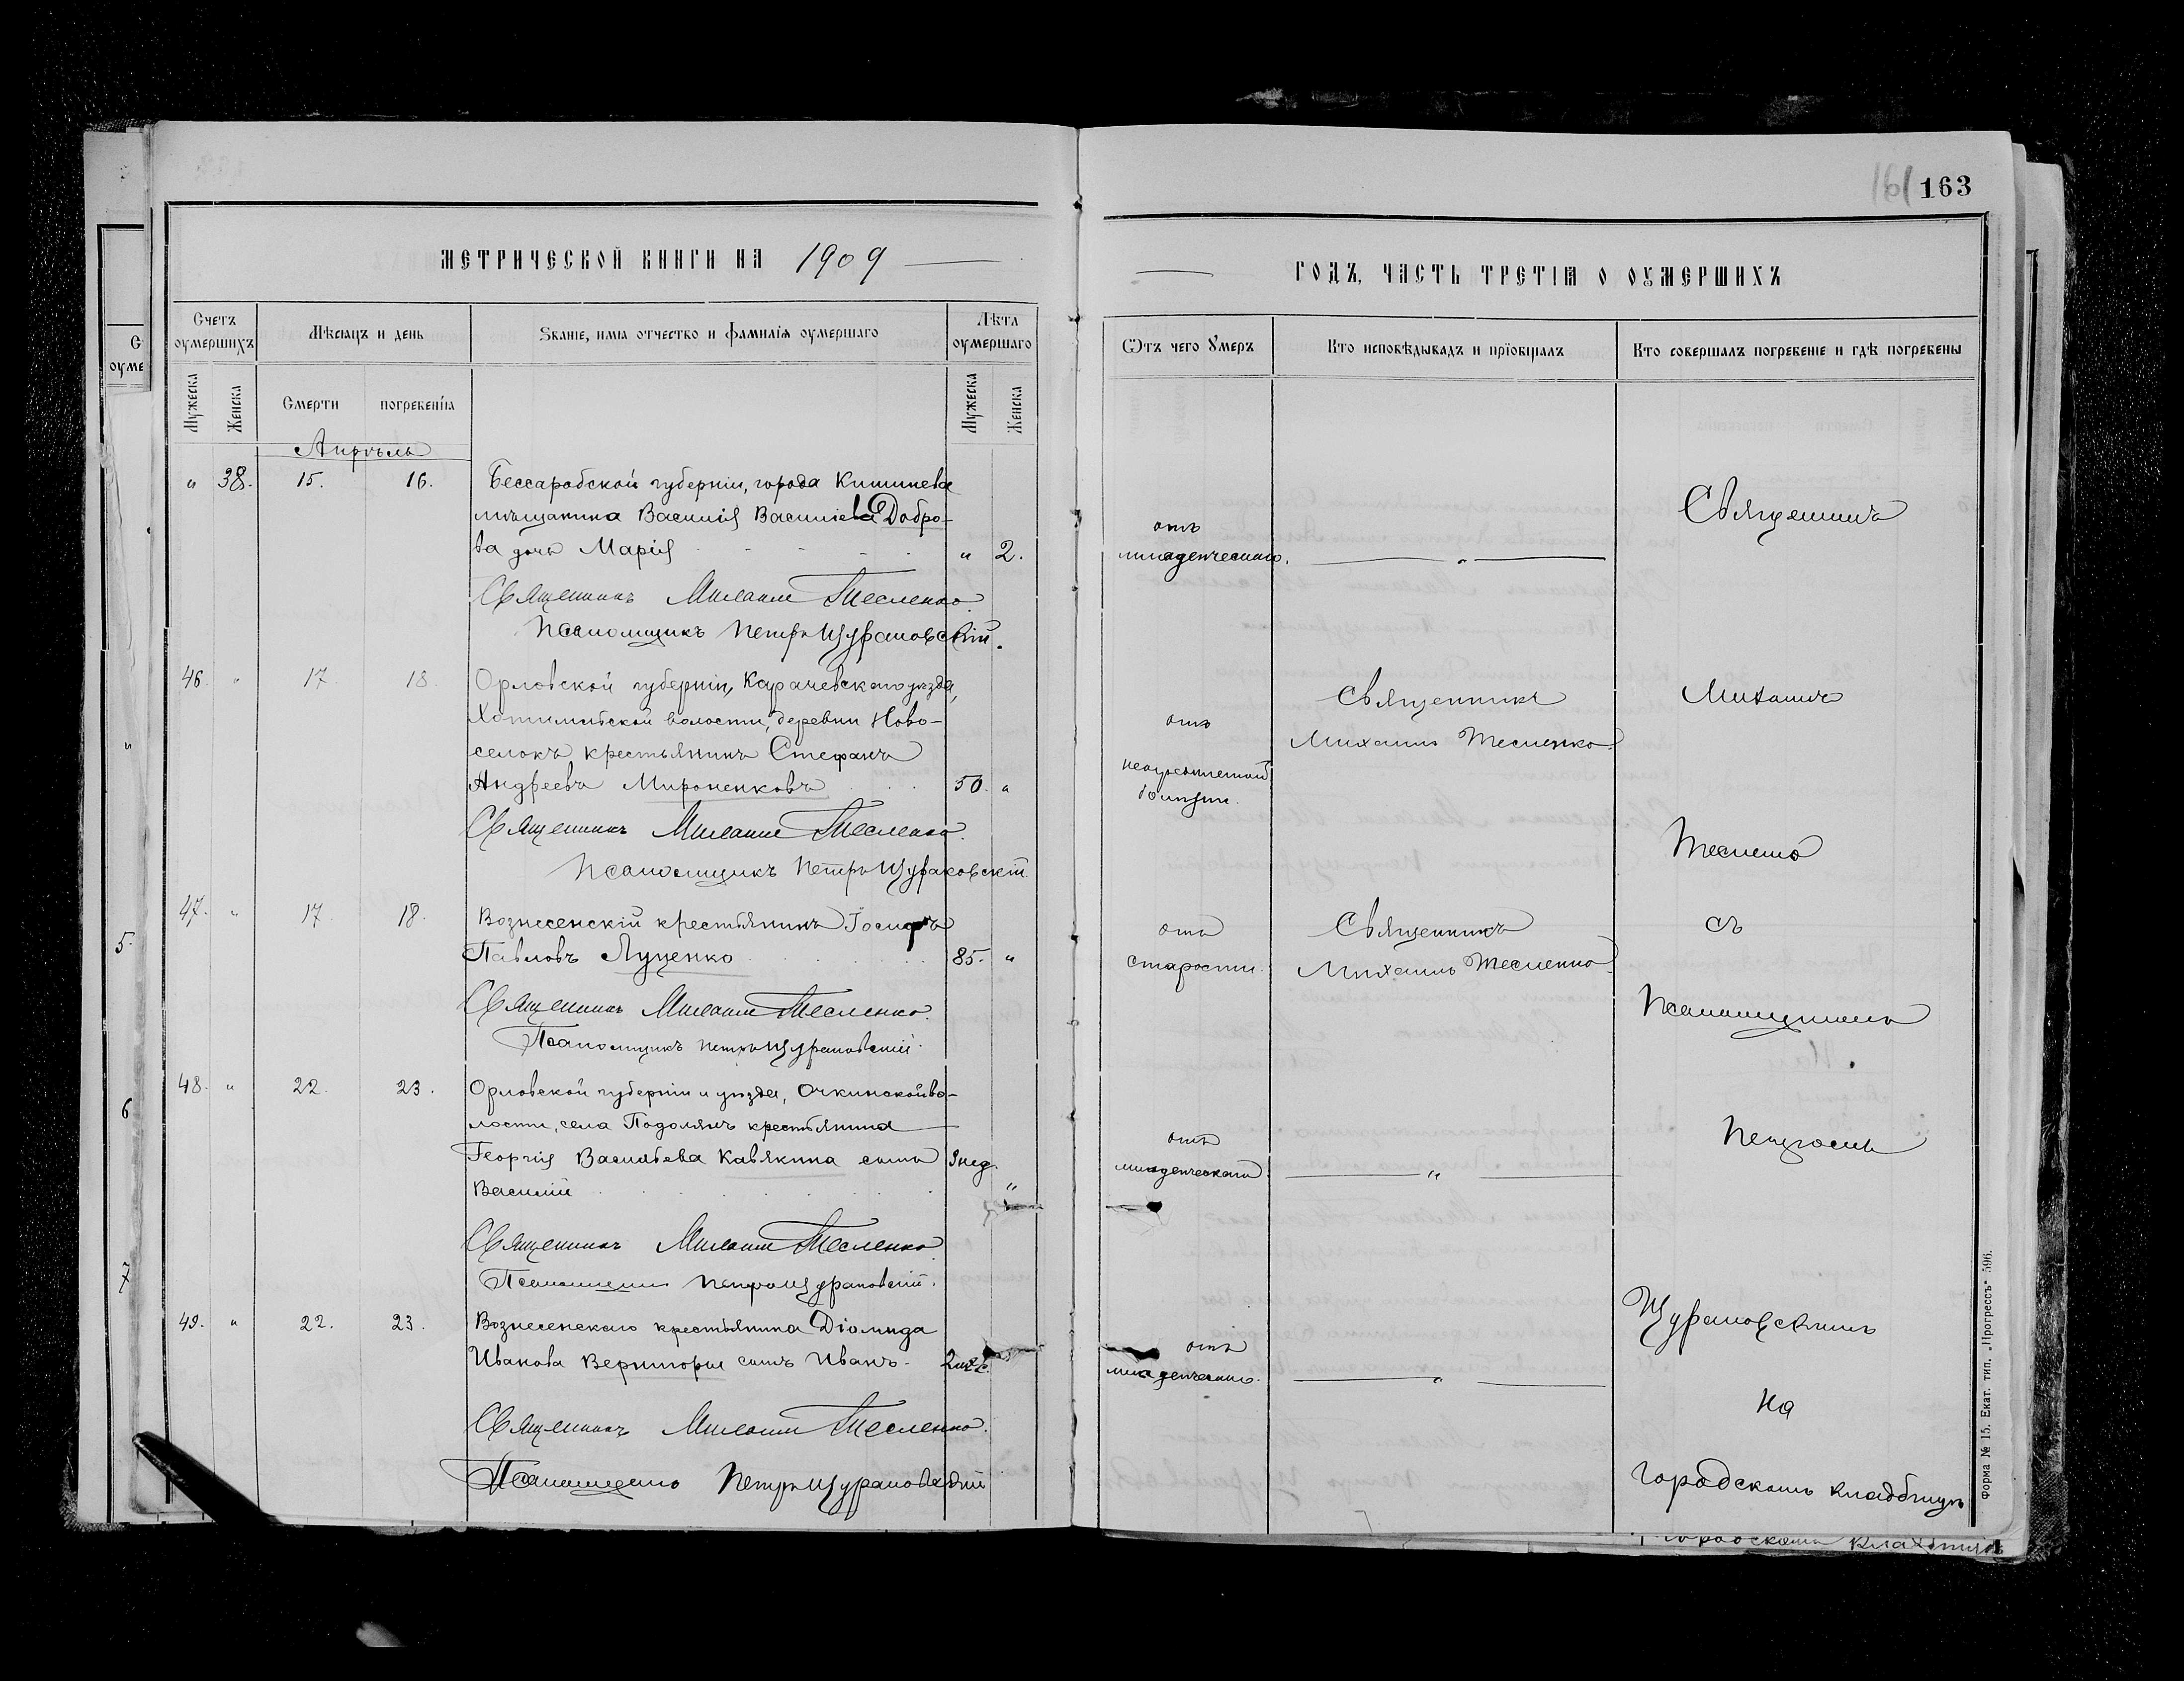 161 163
МЕТРИЧЕСКОЙ КНИГИ НА 1909
ГОДЪ, ЧАСТЬ ТРЕТІѦ О ОУМЕРШИХЪ
Счетъ оумершихъ
Мѣсяцъ и день
Званіе, имя отчество и фамилія оумершаго
Лѣта оумершаго
Ѿтъ чего Умеръ
Кто исповѣдывалъ и пріобщалъ
Кто совершалъ погребеніе и гдѣ погребены
Мужеска
Женска
Смерти
погребенія
Мужеска
Женска
Апрѣль
" 38. 15. 16. Бессарабской губерніи, города Кишинева
мѣщанина Василія Василіева Добро-
ва дочь Марія " 2.
отъ
младенческаго.
Священникъ Михаилъ Тесленко.
Псаломщикъ Петръ Щураковскій.
46. " 17. 18. Орловской губерніи, Карачевскаго уѣзда,
Хотимльской волости, деревни Ново-
селокъ крестьянинъ Стефанъ
Андреевъ Мироненковъ 50. "
отъ
болѣзни.
Священникъ
Михаилъ Тесленко.
Священникъ Михаилъ Тесленко.
Псаломщикъ Петръ Щураковскій
47. " 17. 18. Вознесенскій крестьянинъ Іосифъ
Павловъ Луценко 85. "
отъ
старости.
Священникъ
Михаилъ Тесленко.
Священникъ Михаилъ Тесленко.
Псаломщикъ Петръ Щураковскій.
48. " 22. 23. Орловской губерніи и уѣзда, Очкинской во-
лости, села Подолянъ крестьянина
Георгія Васильева Кавякина сынъ 3 нед.
Василій "
отъ
младенческаго.
"
Священникъ Михаилъ Тесленко
Псаломщикъ Петръ Щураковскій.
49. " 22. 23. Вознесенскаго крестьянина Діомида
Иванова Вернигоры сынъ Иванъ. 2 мѣс.
отъ
младенческаго.
"
Священникъ Михаилъ Тесленко.
Псаломщикъ Петръ Щураковскій
Священникъ
Михаилъ
Тесленко
съ
Псаломщикомъ
Петромъ
Щураковскимъ
на
городскомъ кладбищѣ
5.
6
7
Форма № 15. Екат. тип. „Прогрессъ" 596.
городскомъ кладбищѣ